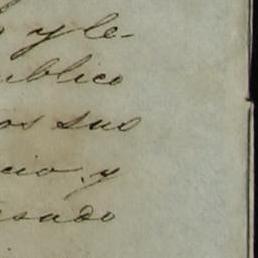 y le-
ublico
os sus
cio, y
sado